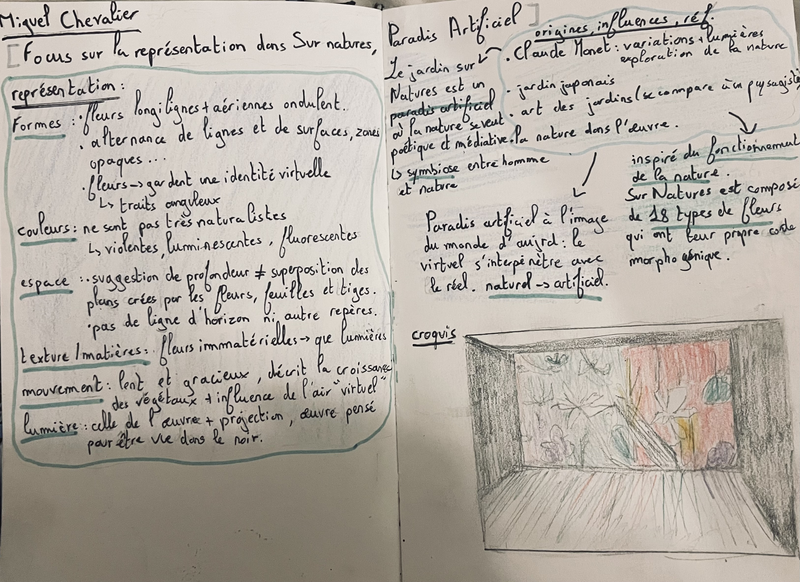 Miguel Chevalier
[Focus sur la représentation dans Sur natures,
représentation :
Formes : . fleurs longilignes + aériennes ondulent..
. alternance de lignes et de surfaces, zones
opaques ...
. fleurs → gardent une identité virtuelle
↳ traits anguleux
couleurs : ne sont pas très naturalistes
↳ violentes, luminescantes, fluorescentes
espace : . suggestion de profondeur ≠ superposition des
plans crées par les fleurs, feuilles et tiges.
. pas de ligne d'horizon ni autre repères.
texture/matières : . fleurs immatérielles → que lumières
mouvement : lent et gracieux, décrit la croissance
des végétaux + influence de l'air "virtuel"
lumière : celle de l'œuvre + projection, œuvre pensé
pour être vue dans le noir.
Paradis Artificiel ]
Le jardin sur
Natures est un
paradis artificiel
où la nature se veut
poétique et médiative.
↳ symbiose entre homme
et nature
origines, influences, réf.
. Claude Monet : variations + lumières
exploration de la nature
. jardin japonais
. art des jardins (se compare à un paysagiste
. la nature dans l'œuvre.
Paradis artificiel à l'image
du monde d'aujrd : le
virtuel s'interpénètre avec
le réel. naturel → artificiel.
inspiré du fonctionnement
de la nature.
Sur Natures est composé
de 18 types de fleurs
qui ont leur propre code
morphogénique.
croquis